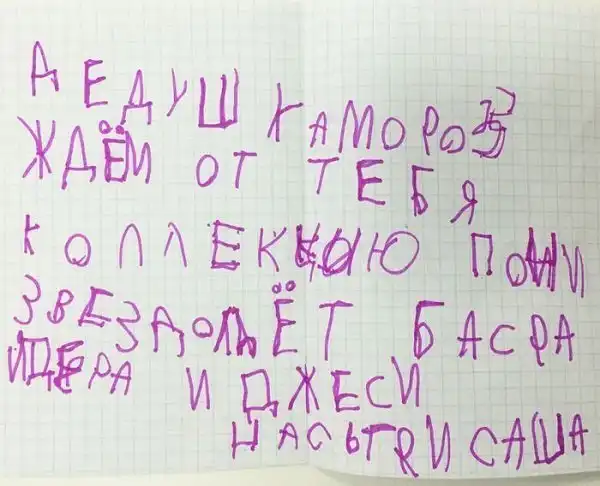 ДЕДУШКАМОРОЗ
ЖДЁМ ОТ ТЕБЯ
КОЛЛЕКЦЫЮ ПОНИ
ЗВЕЗДОЛЬЁТ БАСРА
ИДЕРА И ДЖЕСИ
НАСЬТЯИ САША